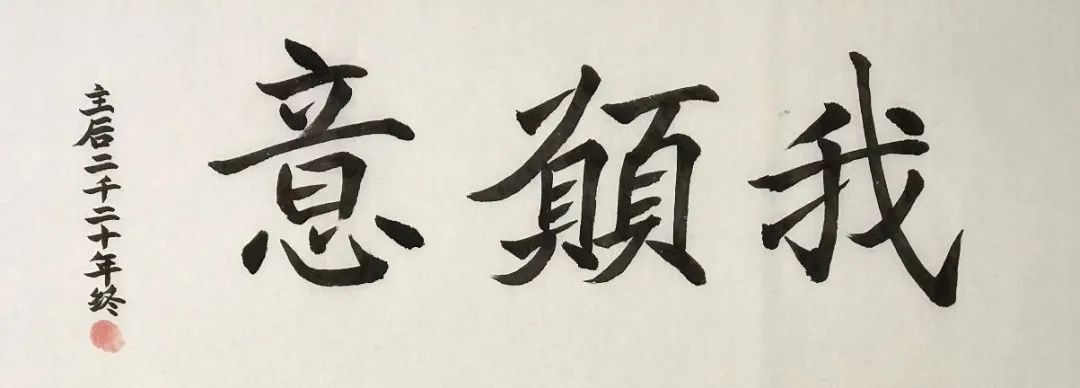 我願意
主后二千二十年终